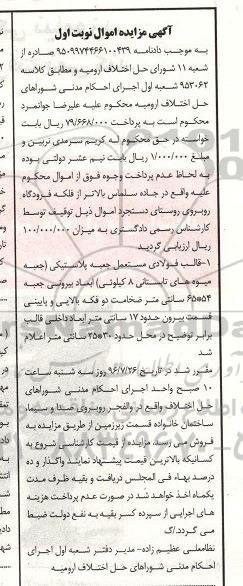 آگهی مزایده اموال نوبت اول
به موجب دادنامه ۹۵۰۹۹۷۴۴۶۶۱۰۰۴۳۹ صادره از
شعبه ۱۱ شورای حل اختلاف ارومیه و مطابق کلاسه
۹۵۳۰۶۲ شعبه اول اجرای احکام مدنی شوراهای
حل اختلاف ارومیه محکوم علیه علیرضا جوانمرد
محکوم است به پرداخت ۷۹/۶۶۸/۰۰۰ ریال بابت
خواسته در حق محکوم له کریم سرمدی نربین و
مبلغ ۱/۰۰۰/۰۰۰ ریال بابت نیم عشر دولتی بوده
به لحاظ عدم پرداخت وجوه فوق از اموال محکوم
علیه واقع در جاده سلماس بالاتر از فلکه فرودگاه
روبروی روستای دستجرد اموال ذیل توقیف توسط
کارشناس رسمی دادگستری به میزان ۱۰۰/۰۰۰/۰۰۰
ریال ارزیابی گردید
۱-قالب فولادی مستعمل جعبه پلاستیکی (جعبه
میوه های تابستانی ۸ کیلوئی) ابعاد بیرونی جعبه
۵۴*۶۵ سانتی متر ضخامت دو فکه بالایی و پایینی
قسمت بیرون حدود ۱۷ سانتی متر ابعاد داخلی قالب
برابر توضیح در محل حدود ۳۵*۲۵ سانتی متر اعلام
شد
مقرر شد در تاریخ ۹۶/۷/۲۶ روز سه شنبه ساعت
۱۰ صبح واحد اجرای احکام مدنی شوراهای
حل اختلاف واقع در والفجر روبروی صدا و سیما
ساختمان خانواده قسمت زیرزمین از طریق مزایده به
فروش می رسد. مزایده از قیمت کارشناسی شروع به
کسانیکه بالاترین قیمت پیشنهاد نمایند واگذار و ده
درصد بهاء فی المجلس دریافت و بقیه ظرف مدت
یکماه اخذ خواهد شد در صورت عدم پرداخت هزینه
های اجرایی از سپرده کسر بقیه به نفع دولت ضبط
می گردد./گ
نظامعلی عظیم زاده- مدیر دفتر شعبه اول اجرای
احکام مدنی شوراهای حل اختلاف ارومیه